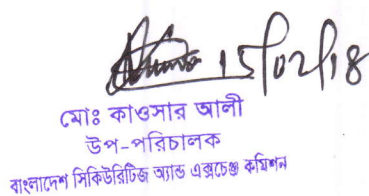 15/02/18
মোঃ কাওসার আলী
উপ-পরিচালক
বাংলাদেশ সিকিউরিটিজ অ্যান্ড এক্সচেঞ্জ কমিশন